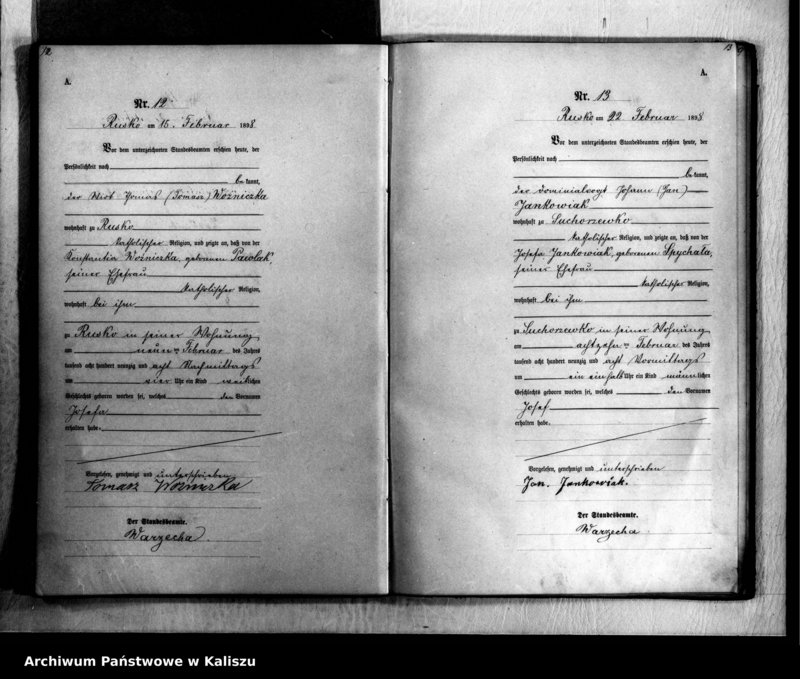 12
A.
Nr. 12
Rusko am 16. Februar 1898
Vor dem unterzeichneten Standesbeamten erschien heute, der
Persönlichkeit nach
bekannt,
der Wirt Thomas (Tomasz) Woźniczka
wohnhaft zu Rusko
katholischer Religion, und zeigte an, daß von der
Konstantia Woźniczka, geborenen Pawlak,
seiner Ehefrau
katholischer Religion,
wohnhaft bei ihm
zu Rusko in seiner Wohnung
am neunten Februar des Jahres
tausend acht hundert neunzig und acht Nachmittags
um vier Uhr ein Kind weiblichen
Geschlechts geboren worden sei, welches den Vornamen
Josefa
erhalten habe.
Vorgelesen, genehmigt und unterschrieben
Tomasz Woźniczka
Der Standesbeamte.
Warzecha.
13
A.
Nr. 13
Rusko am 22 Februar 1898
Vor dem unterzeichneten Standesbeamten erschien heute, der
Persönlichkeit nach
bekannt,
der Dominialvogt Johann (Jan)
Jankowiak
wohnhaft zu Suchorzewko
katholischer Religion, und zeigte an, daß von der
Josefa Jankowiak, geborenen Spychała,
seiner Ehefrau
katholischer Religion,
wohnhaft bei ihm
zu Suchorzewko in seiner Wohnung
am achtzehnten Februar des Jahres
tausend acht hundert neunzig und acht Vormittags
um ein einhalb Uhr ein Kind männlichen
Geschlechts geboren worden sei, welches den Vornamen
Josef
erhalten habe.
Vorgelesen, genehmigt und unterschrieben
Jan. Jankowiak.
Der Standesbeamte.
Warzecha
Archiwum Państwowe w Kaliszu